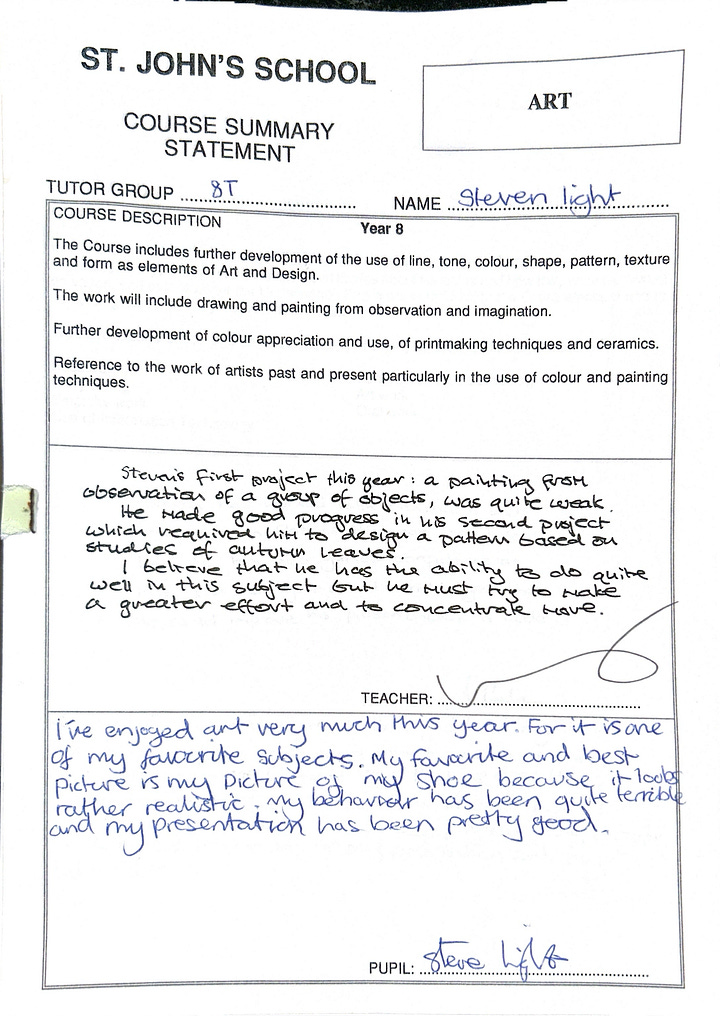 ST. JOHN'S SCHOOL
ART
COURSE SUMMARY
STATEMENT
TUTOR GROUP 8T
NAME Steven light
COURSE DESCRIPTION
Year 8
The Course includes further development of the use of line, tone, colour, shape, pattern, texture
and form as elements of Art and Design.
The work will include drawing and painting from observation and imagination.
Further development of colour appreciation and use, of printmaking techniques and ceramics.
Reference to the work of artists past and present particularly in the use of colour and painting
techniques.
Steven's first project this year: a painting from
observation of a group of objects, was quite weak.
He made good progress in his second project
which required him to design a pattern based on
studies of autumn leaves.
I believe that he has the ability to do quite
well in this subject but he must try to make
a greater effort and to concentrate more.
TEACHER:
I've enjoyed art very much this year. For it is one
of my favourite subjects. My favourite and best
picture is my picture of my shoe because it looks
rather realistic. my behaviour has been quite terrible
and my presentation has been pretty good.
PUPIL: Steve Light